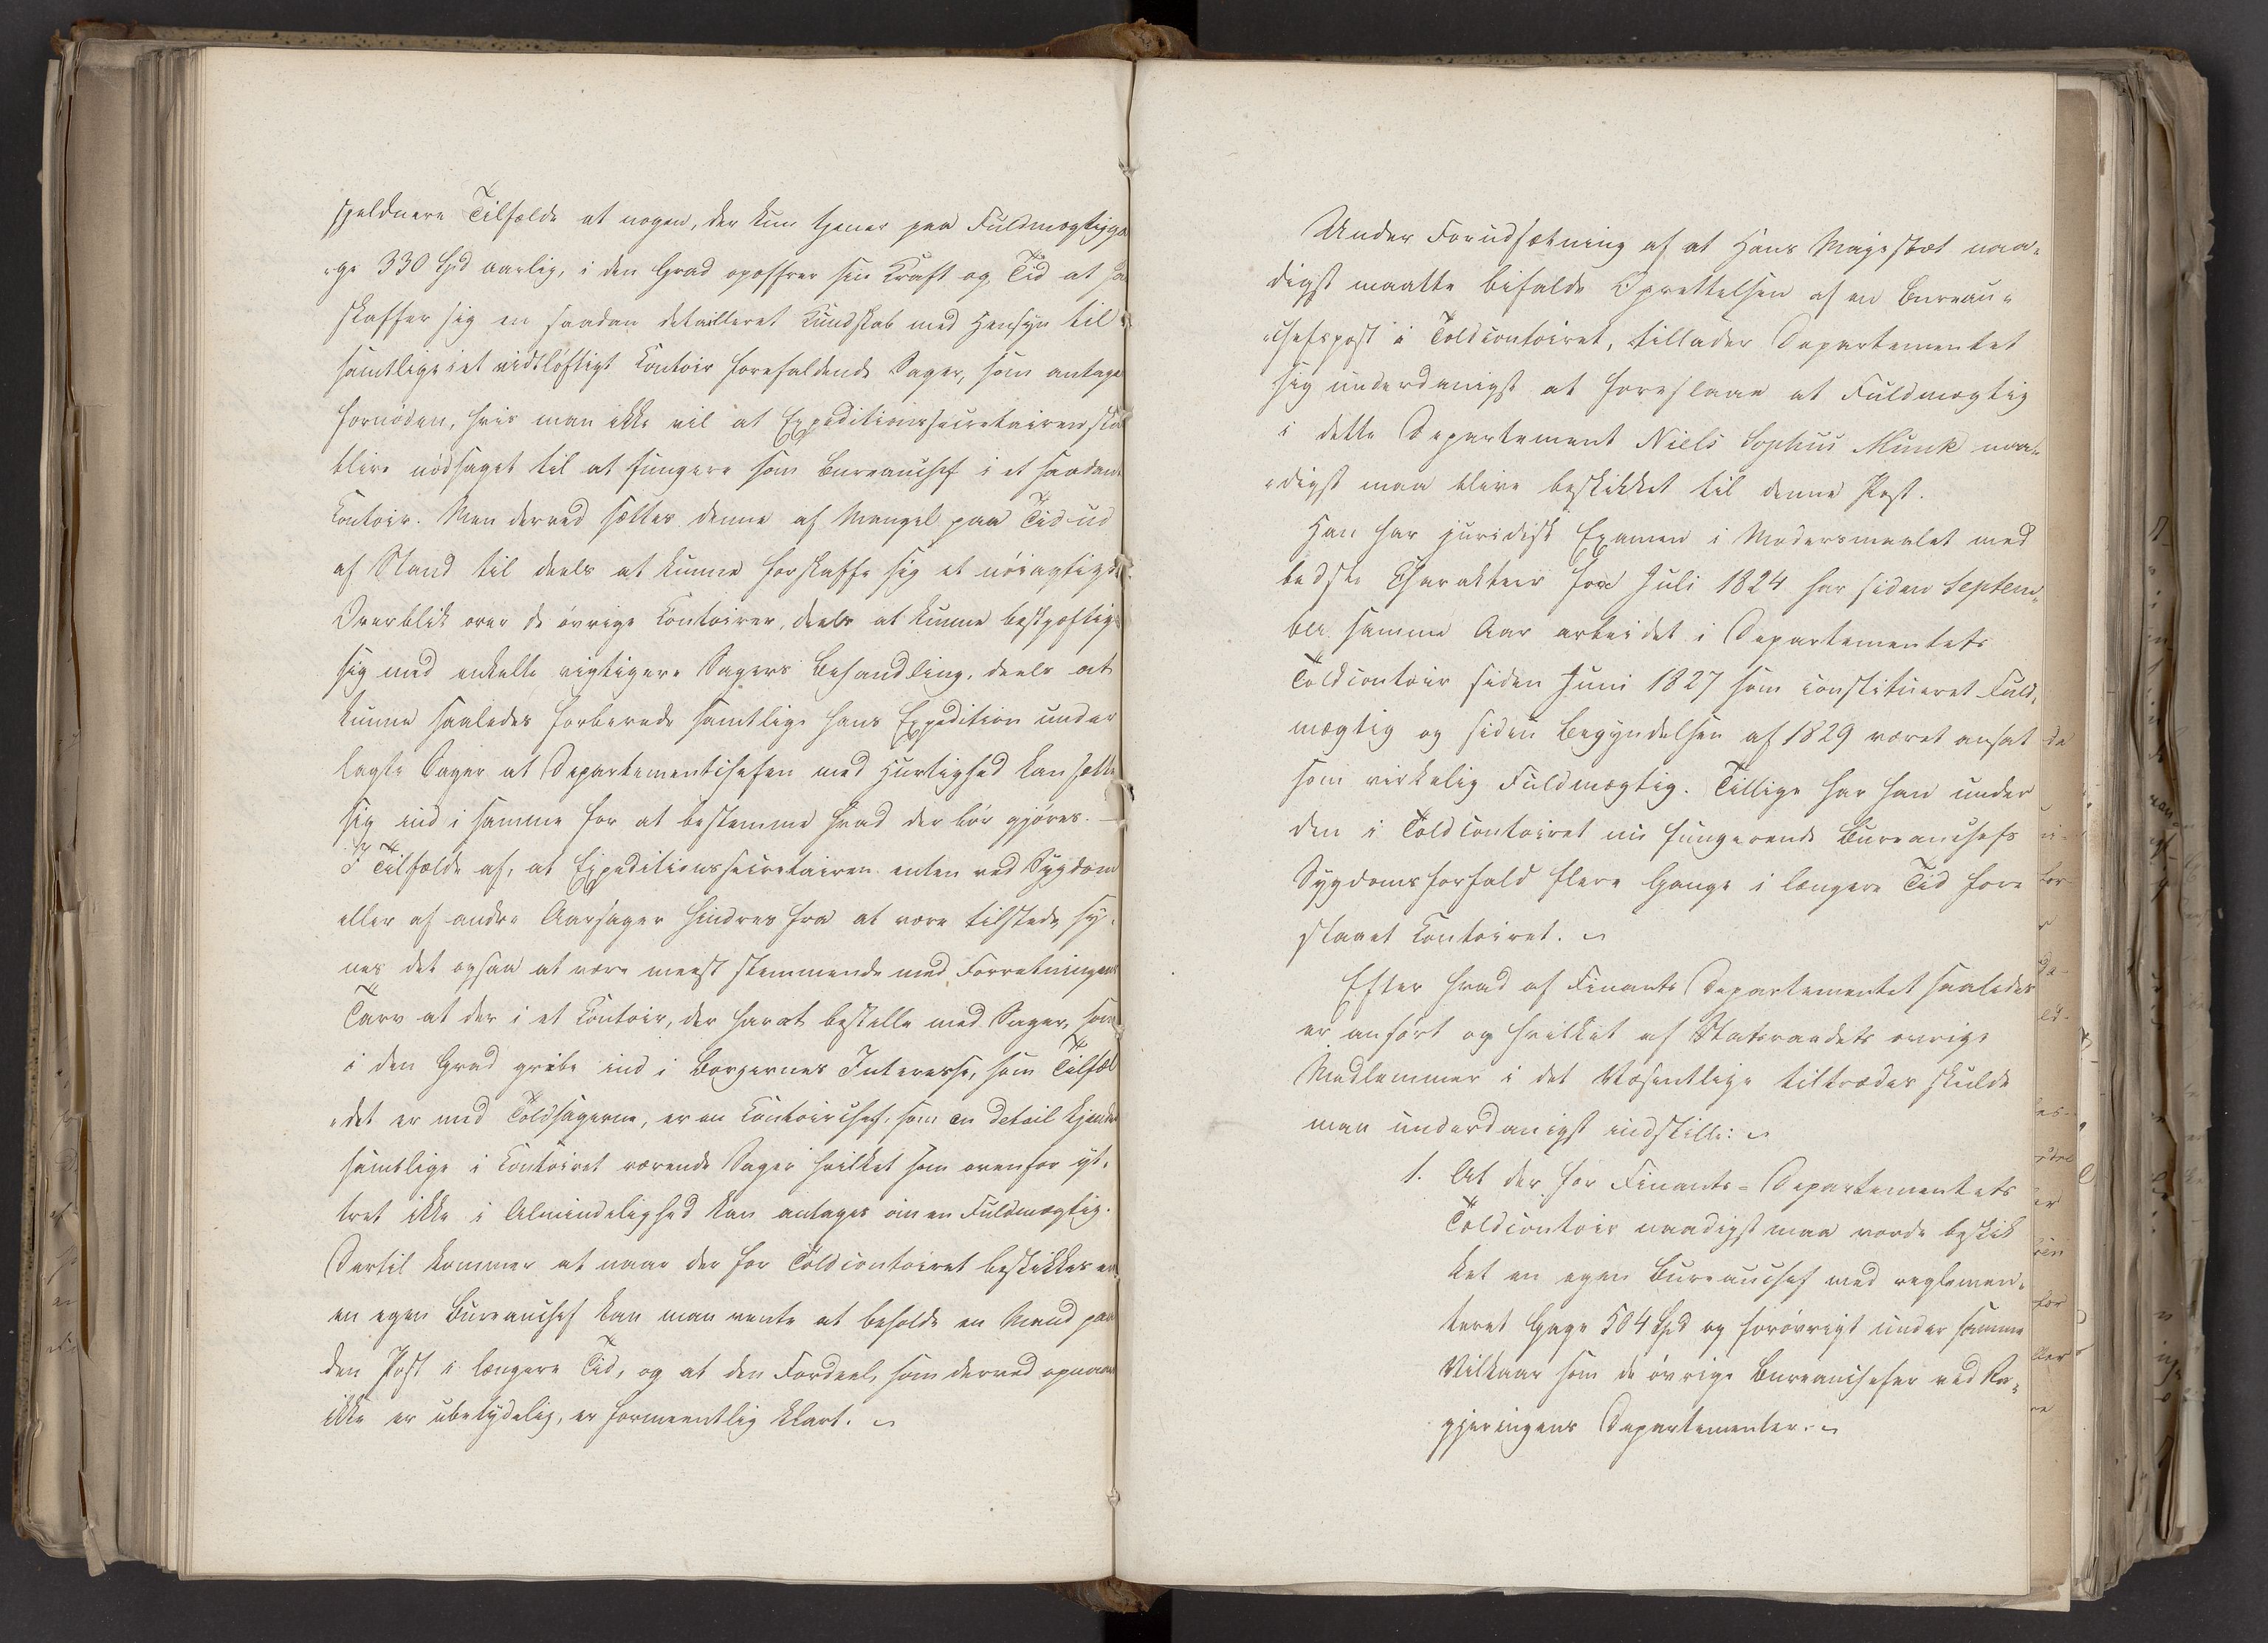 sjeldnere Tilfælde at nogen, der kun tjener paa Fuldmægtigga
ge 330 Spd aarlig, i den Grad opoffrer sin Kraft og Tid at han
skaffer sig en saadan detailleret Kundskab med Hensyn til
samtlige i et vidtløftigt Contoir forefaldende Sager, som antages
fornøden, hvis man ikke vil at Expeditionssecretairen skal
blive nødsaget til at fungere som Bureauchef i et saadant
Contoir. Men derved sættes denne af Mangel paa Tid ud
af Stand til deels at kunne forskaffe sig et nøiagtigt
Overblik over de øvrige Contoirer, deels at kunne beskjæftige
sig med enkelte vigtigere Sagers Behandling, deels at
kunne saaledes forberede samtlige hans Expedition under
lagte Sager at Departementschefen med Hurtighed kan sætte
sig ind i samme for at bestemme hvad der bør gjøres. —
I Tilfælde af, at Expeditionssecretairen enten ved Sygdom
eller af andre Aarsager hindres fra at være tilstede sy-
nes det ogsaa at være meest stemmende med Forretningens
Tarv at der i et Contoir, der har at bestille med Sager, som
i den Grad gribe ind i Borgernes Interesse, som Tilfæl
„det er med Toldsagerne, er en Contoirchef, som en detail kjender
samtlige i Contoiret værende Sager hvilket som ovenfor yt-
tret ikke i Almindelighed kan antages om en Fuldmægtig.
Dertil kommer at naar der for Toldcontoiret beskikkes en
en egen Bureauchef kan man vente at beholde en Mand paa
den Post i længere Tid, og at den Fordeel, som derved opnaaes
ikke er ubetydelig, er formeentlig klart.
Under Forudsætning af at Hans Majestæt naa„
digst maatte bifalde Oprettelsen af en Bureau„
„chefspost i Toldcontoiret, tillader Departementet
sig underdanigst at foreslaae at Fuldmægtig
i dette Departement Niels Sophus Munk naa„
„digst maa blive beskikket til denne Post.
Han har juridisk Examen i Modersmaalet med
bedste Charakteer fra Juli 1824 har siden Septem„
ber samme Aar arbeidet i Departementets
Toldcontoir siden Juni 1827 som constitueret Fuld„
mægtig og siden Begyndelsen af 1829 været ansat
som virkelig Fuldmægtig. Tillige har han under
den i Toldcontoiret nu fungerende Bureauchefs
Sygdomsforfald flere Gange i længere Tid fore
staaet Contoiret.
Efter hvad af Finants Departementet saaledes
er anført og hvilket af Statsraadets øvrige
Medlemmer i det Væsentlige tiltrædes skulde
man underdanigst indstille:
1. At der for Finants-Departementets
Toldcontoir naadigst maa vorde beskik
ket en egen Bureauchef med reglemen„
teret Gage 504 Spd og forøvrigt under samme
Vilkaar som de øvrige Bureauchefer ved Re„
gjeringens Departementer.